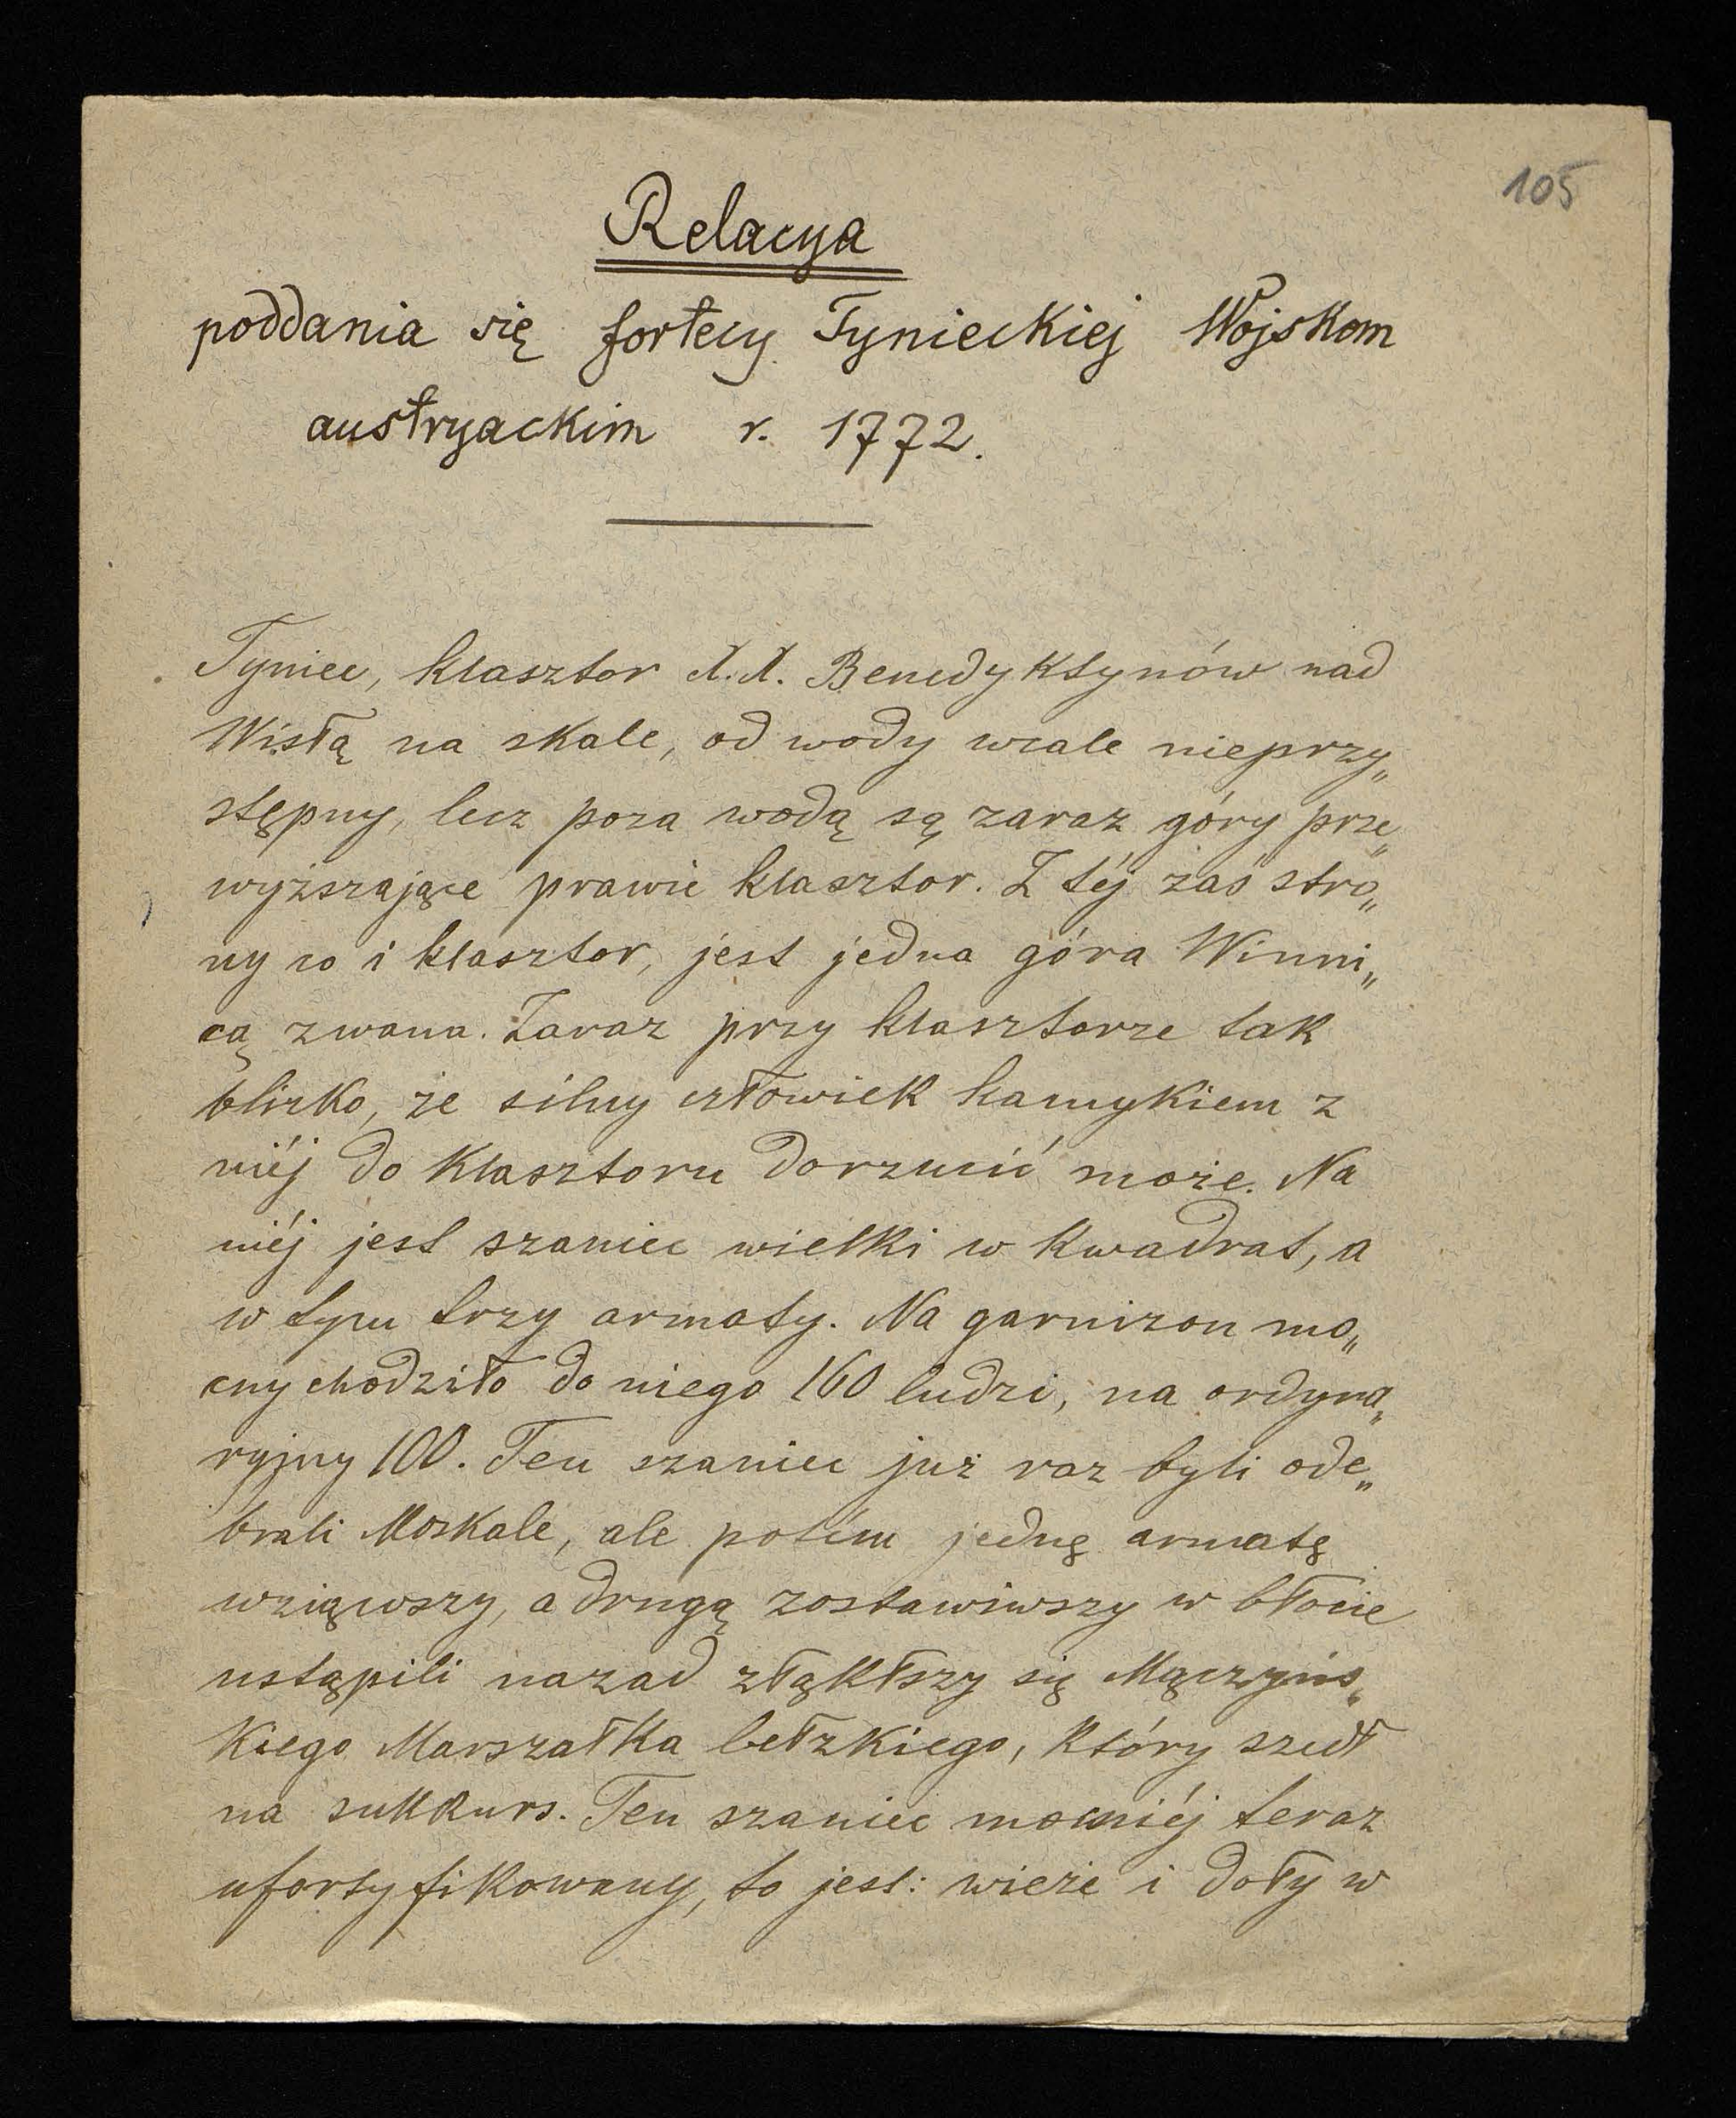 105
Relacya
poddania się fortecy Tynieckiej Wojskom
austryackim r. 1772.
Tyniec, klasztor X.X. Benedyktynów nad
Wisłą na skale, od wody wcale nieprzy„
stępny, lecz poza wodą są zaraz góry prze„
wyższające prawie klasztor. Z téj zaś stro„
ny co i klasztor, jest jedna góra Winni„
cą zwana. Zaraz przy klasztorze tak
blizko, że silny człowiek kamykiem z
niéj do Klasztoru dorzucić może. Na
niéj jest szaniec wielki w kwadrat, a
w tyru trzy armaty. Na garnizon mo„
cny chodziło do niego 160 ludzi, na ordyna„
ryjny 100. Ten szaniec już raz byli ode„
brali Moskale, ale potém jednę armatę
wziąwszy, a drugą zostawiwszy w błocie
ustąpili nazad zląkłszy się Mączyńs„
kiego Marszałka bełzkiego, który szedł
na sukkurs. Ten szaniec mocniéj teraz
ufortyfikowany, to jest: wieże i doły w